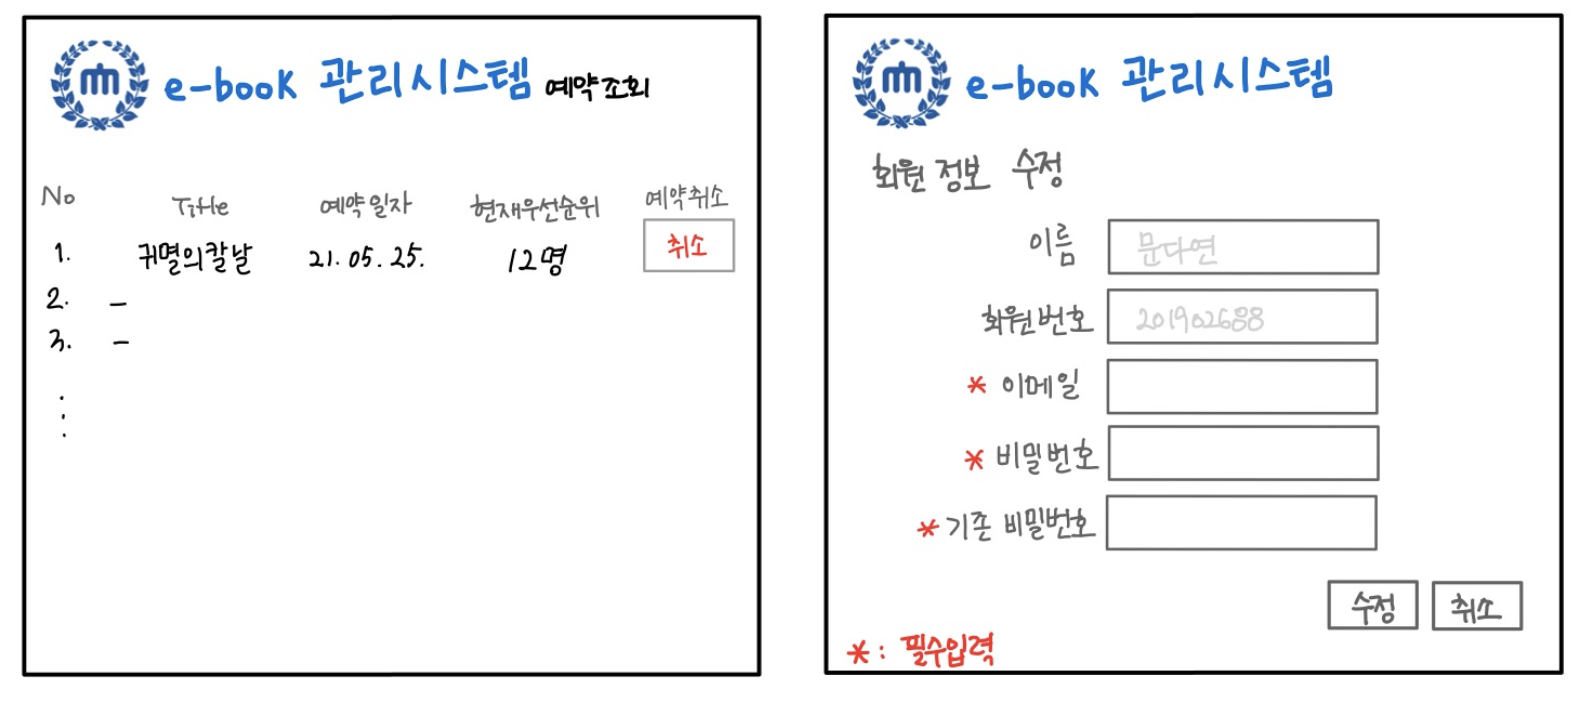 e-book 관리시스템 예약조회
No Title 예약일자 현재우선순위 예약취소
1. 귀멸의칼날 21.05.25. 12명 취소
2. -
3. -
e-book 관리시스템
회원 정보 수정
이름 문다연
회원번호 201902688
* 이메일
* 비밀번호
* 기존 비밀번호
수정 취소
* : 필수입력